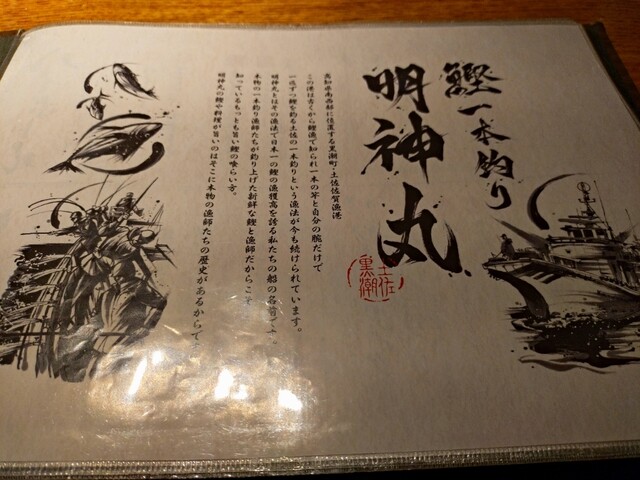 鰹一本釣り
明神丸
土佐
黒潮
高知県南西部に位置する黒潮町・土佐佐賀漁港
この港は古くから鰹漁で知られ一本の竿と自分の腕だけで
一匹ずつ鰹を釣る土佐の一本釣りという漁法が今も続けられています。
明神丸とはその漁法で日本一の鰹の漁獲高を誇る私たちの船の名前です。
本物の一本釣り漁師たちが釣り上げた新鮮な鰹と漁師だからこそ
知っているもっとも旨い鰹の喰らい方。
明神丸の鰹や料理が旨いのはそこに本物の漁師たちの歴史があるからです